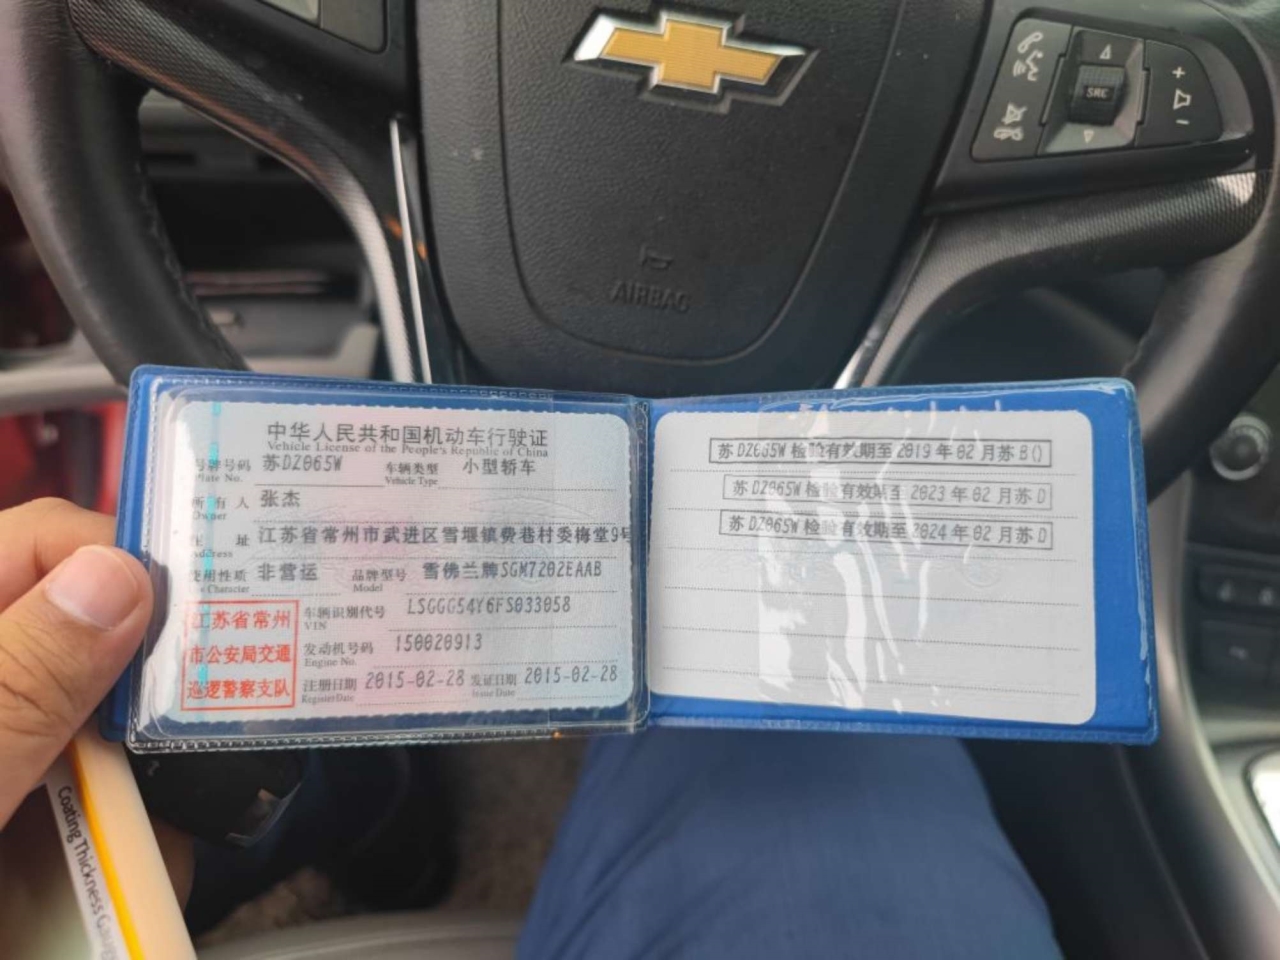 SRC
AIRBAG
中华人民共和国机动车行驶证
Vehicle License of the People's Republic of China
号牌号码 苏DZ065W 车辆类型 小型轿车
Plate No. Vehicle Type
所有人 张杰
Owner
住 址 江苏省常州市武进区雪堰镇费巷村委梅堂9号
Address
使用性质 非营运 品牌型号 雪佛兰牌SGM7202EAAB
Use Character Model
江苏省常州
市公安局交通
巡逻警察支队
车辆识别代号 LSGGG54Y6FS033058
VIN
发动机号码 150020913
Engine No.
注册日期 2015-02-28 发证日期 2015-02-28
Register Date Issue Date
苏DZ065W 检验有效期至 2019 年 02 月苏 B()
苏 DZ065W 检验有效期至 2023 年 02 月苏 D
苏 DZ065W 检验有效期至 2024 年 02 月苏 D
Coating Thickness Gauge